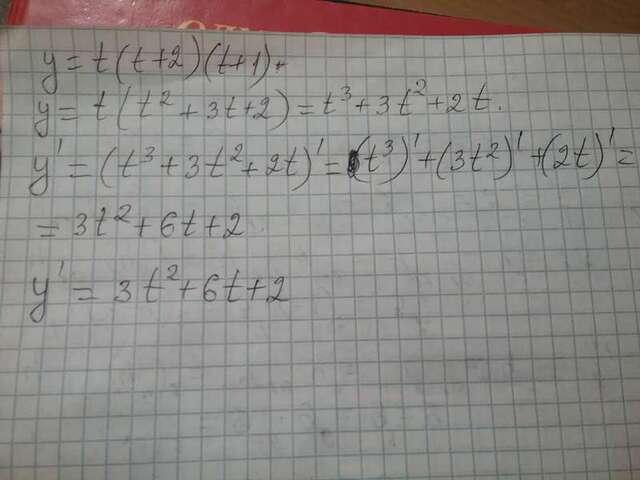 y = t(t+2)(t+1).
y = t(t² + 3t+2) = t³ + 3t² + 2t.
y' = (t³ + 3t² + 2t)' = (t³)' + (3t²)' + (2t)' =
= 3t² + 6t + 2
y' = 3t² + 6t + 2